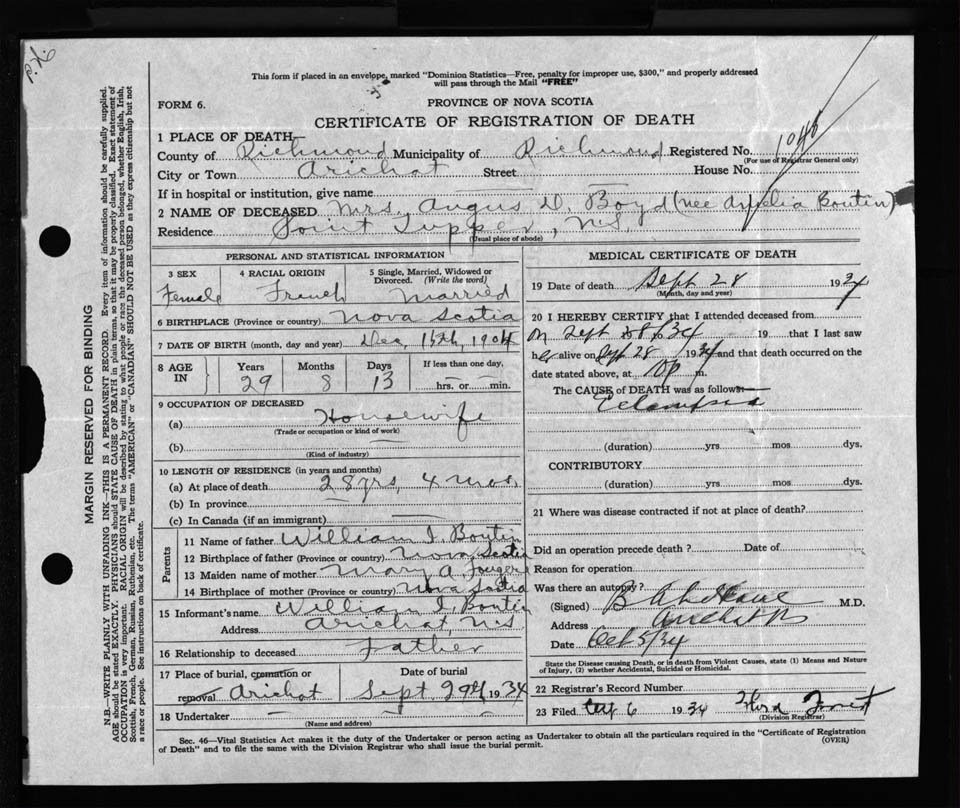 P.K.
This form if placed in an envelope, marked "Dominion Statistics—Free, penalty for improper use, $300," and properly addressed
will pass through the Mail "FREE"
FORM 6.
PROVINCE OF NOVA SCOTIA
CERTIFICATE OF REGISTRATION OF DEATH
1 PLACE OF DEATH—
County of Richmond Municipality of Richmond Registered No. 1046
(For use of Registrar General only)
City or Town Arichat Street House No.
If in hospital or institution, give name
2 NAME OF DECEASED Mrs. Angus D. Boyd (nee Amelia Boutin)
Residence Point Tupper, N.S.
(Usual place of abode)
PERSONAL AND STATISTICAL INFORMATION
3 SEX 4 RACIAL ORIGIN 5 Single, Married, Widowed or
Divorced. (Write the word)
Female French Married
6 BIRTHPLACE (Province or country) Nova Scotia
7 DATE OF BIRTH (month, day and year) Dec, 15th, 1904
8 AGE IN Years Months Days If less than one day,
29 8 13 hrs. or min.
9 OCCUPATION OF DECEASED
(a) Housewife
(Trade or occupation or kind of work)
(b)
(Kind of industry)
10 LENGTH OF RESIDENCE (in years and months)
(a) At place of death 28 yrs, 4 mos.
(b) In province
(c) In Canada (if an immigrant)
Parents
11 Name of father William I. Boutin
12 Birthplace of father (Province or country) Nova Scotia
13 Maiden name of mother Mary A Fougere
14 Birthplace of mother (Province or country) Nova Scotia
15 Informant's name William I. Boutin
Address Arichat, N.S.
16 Relationship to deceased Father
17 Place of burial, cremation or Date of burial
removal Arichat Sept 29th 1934
18 Undertaker
(Name and address)
MEDICAL CERTIFICATE OF DEATH
19 Date of death Sept 28 1934
(Month, day and year)
20 I HEREBY CERTIFY that I attended deceased from
on Sept 28 34 19 that I last saw
her alive on Sept 28 1934 and that death occurred on the
date stated above, at 10 p m.
The CAUSE of DEATH was as follows—
Eclampsia
(duration) yrs mos dys.
CONTRIBUTORY
(duration) yrs. mos. dys.
21 Where was disease contracted if not at place of death?
Did an operation precede death ? Date of
Reason for operation
Was there an autopsy?
(Signed) B M.D.
Address Arichat
Date Oct 5/34
State the Disease causing Death, or in death from Violent Causes, state (1) Means and Nature
of Injury, (2) whether Accidental, Suicidal or Homicidal.
22 Registrar's Record Number
23 Filed Oct 6 1934
(Division Registrar)
Sec. 46—Vital Statistics Act makes it the duty of the Undertaker or person acting as Undertaker to obtain all the particulars required in the "Certificate of Registration
of Death" and to file the same with the Division Registrar who shall issue the burial permit.
(OVER)
MARGIN RESERVED FOR BINDING
N.B.—WRITE PLAINLY WITH UNFADING INK—THIS IS A PERMANENT RECORD. Every item of information should be carefully supplied.
AGE should be stated EXACTLY. PHYSICIANS should STATE CAUSE OF DEATH in plain terms, so that it may be properly classified. Exact statement of
OCCUPATION is very important. RACIAL ORIGIN will be described by stating to what people or race the deceased person belonged, whether English, Irish,
Scottish, French, German, Russian, Ruthenian, etc. The terms "AMERICAN" or "CANADIAN" SHOULD NOT BE USED as they express citizenship but not
a race or people. See instructions on back of certificate.